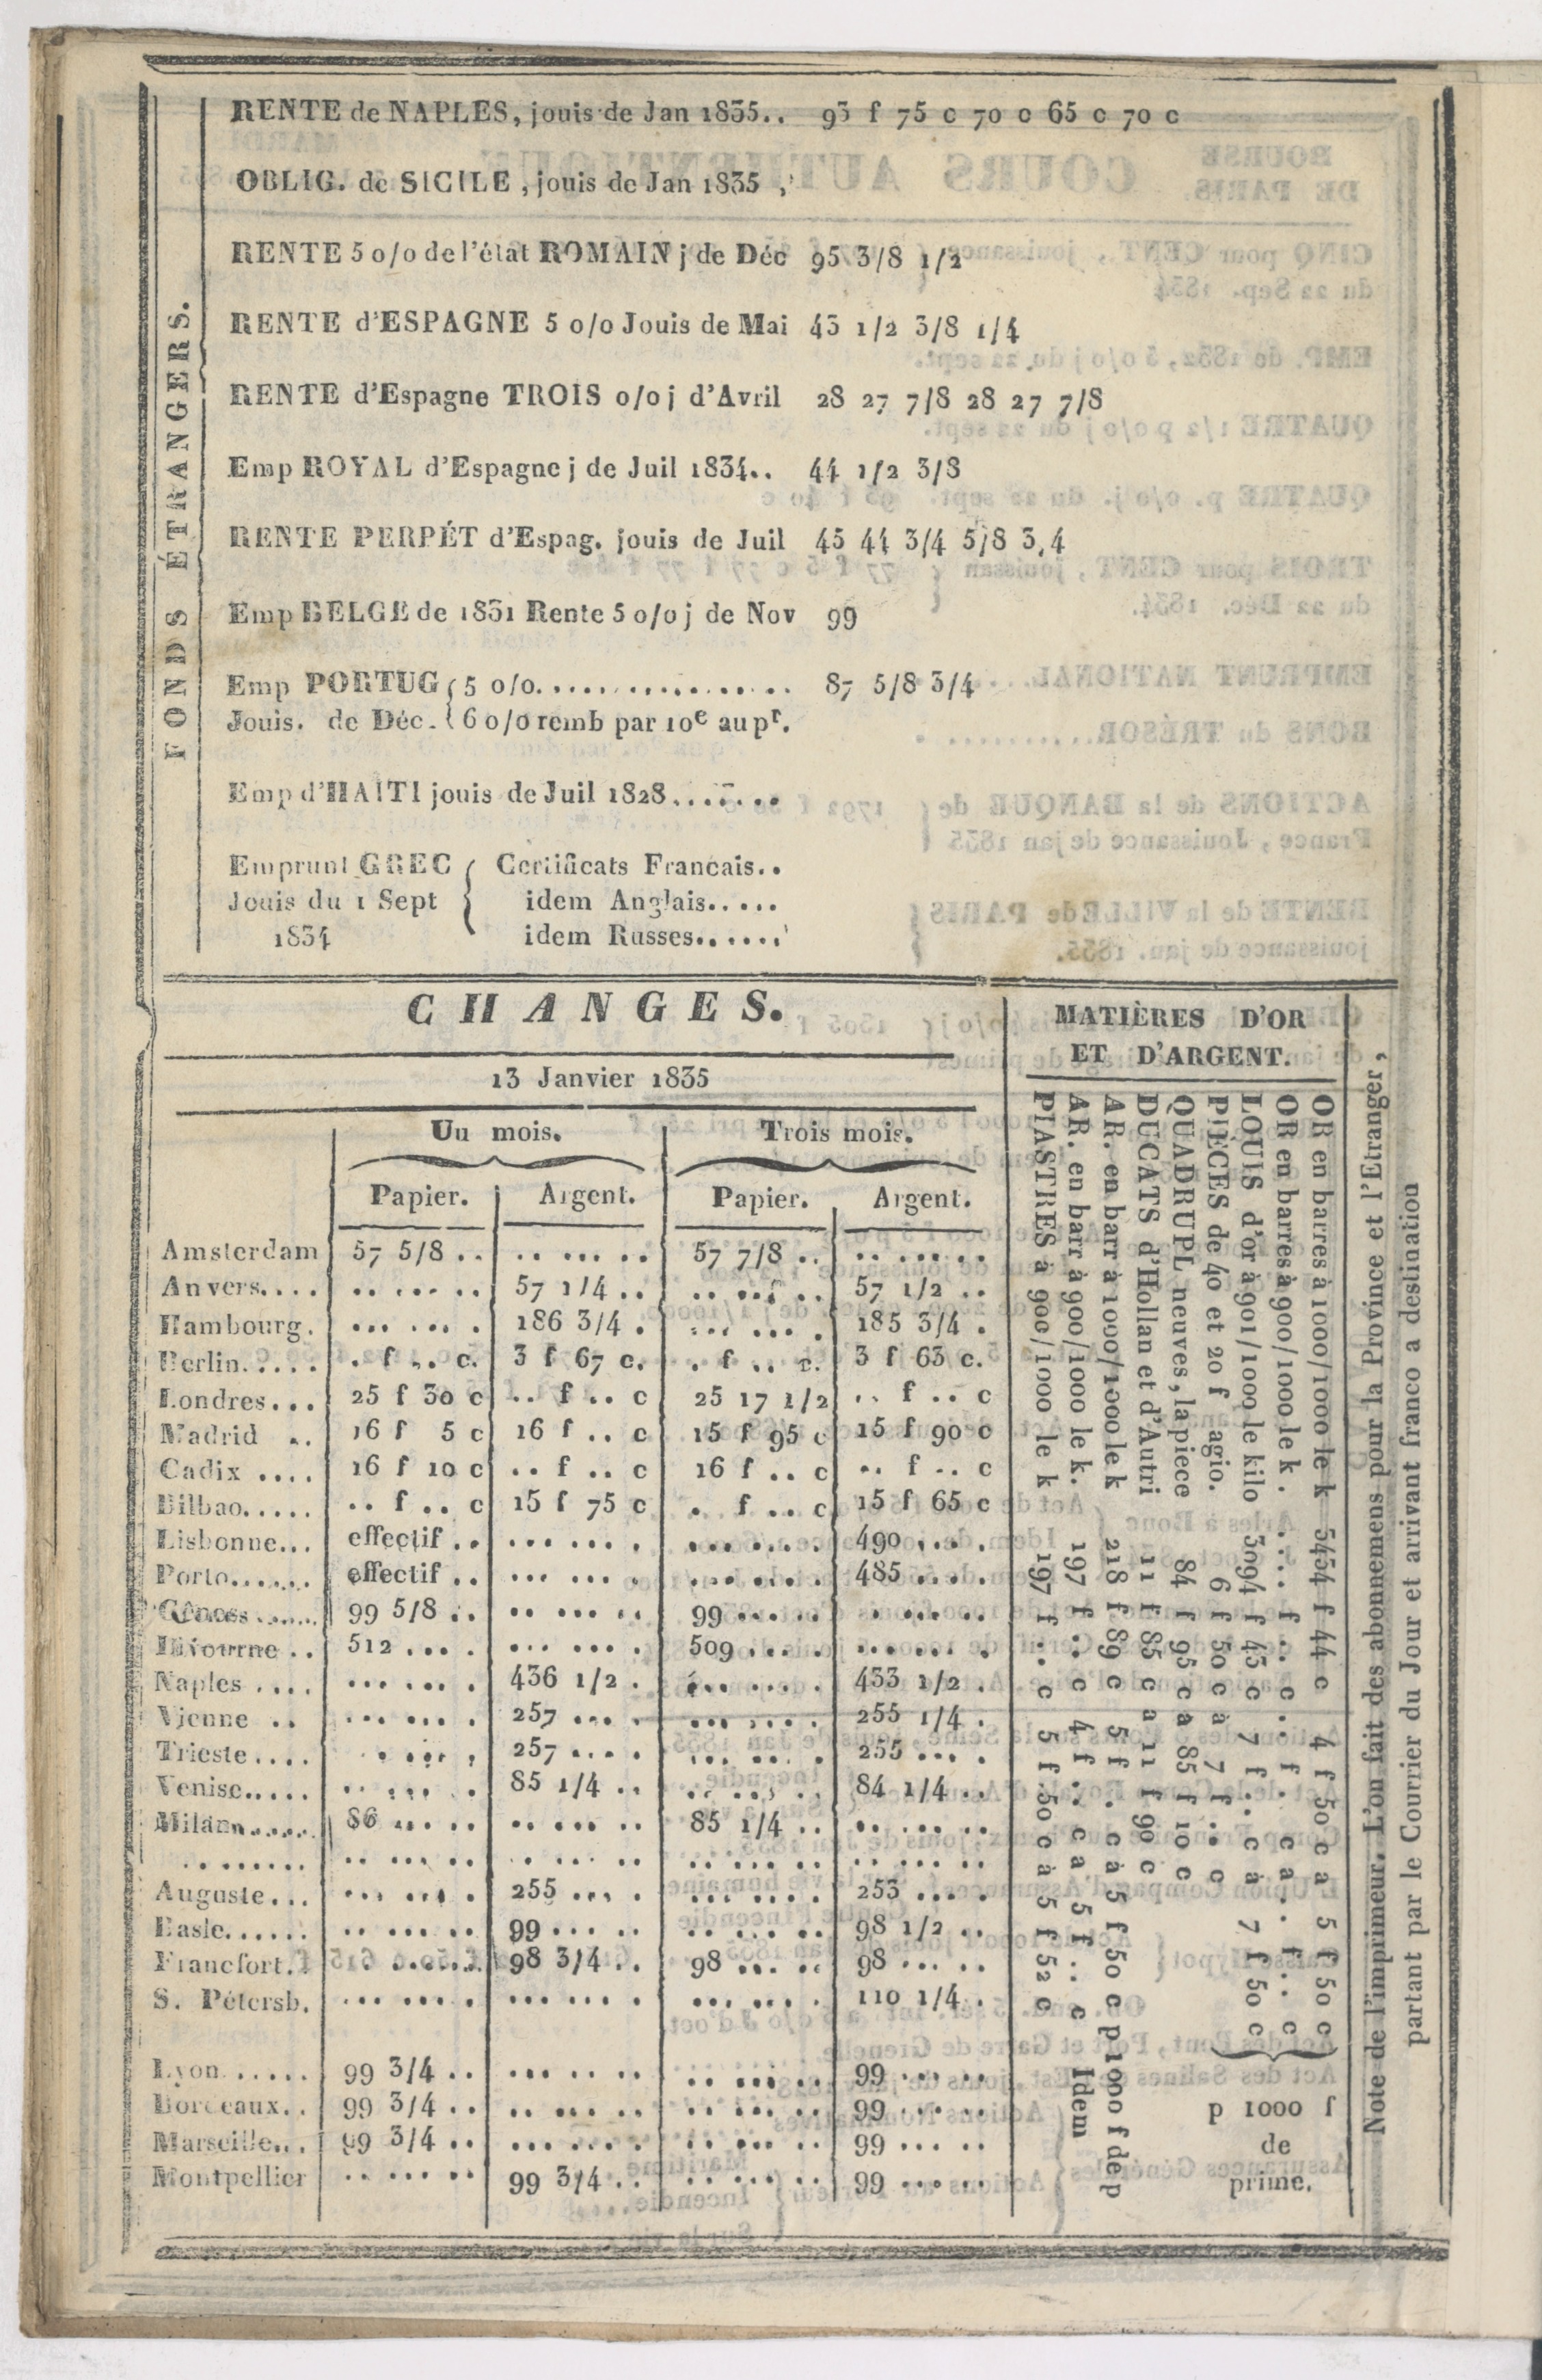 FONDS ÉTRANGERS.
RENTE de NAPLES, jouis de Jan 1835.. 93 f 75 c 70 c 65 c 70 c
OBLIG. de SICILE, jouis de Jan 1835
RENTE 5 o/o de l'état ROMAIN j de Déc 95 3/8 1/2
RENTE d'ESPAGNE 5 o/o Jouis de Mai 43 1/2 3/8 1/4
RENTE d'Espagne TROIS o/o j d'Avril 28 27 7/8 28 27 7/8
Emp ROYAL d'Espagne j de Juil 1834.. 44 1/2 3/8
RENTE PERPÉT d'Espag. jouis de Juil 45 44 3/4 5/8 3,4
Emp BELGE de 1831 Rente 5 o/o j de Nov 99
Emp PORTUG { 5 o/o................ 87 5/8 3/4
Jouis. de Déc. { 6 o/o remb par 10e au pr.
Emp d'HAITI jouis de Juil 1828........
Emprunt GREC { Certificats Francais..
Jouis du 1 Sept idem Anglais.....
1834 idem Russes......
CHANGES.
13 Janvier 1835
Uu mois. Trois mois.
Papier. Argent. Papier. Argent.
Amsterdam 57 5/8 .. .. ... .. 57 7/8 .. .. ... ..
Anvers.... .. ... .. 57 1/4 .. .. ... .. 57 1/2 ..
Hambourg. ... ... . 186 3/4 . ... ... . 185 3/4 .
Berlin..... . f .. c. 3 f 67 c. . f .. c. 3 f 63 c.
Londres... 25 f 30 c .. f .. c 25 17 1/2 .. f .. c
Madrid .. 16 f 5 c 16 f .. c 15 f 95 c 15 f 90 c
Cadix .... 16 f 10 c .. f .. c 16 f .. c .. f .. c
Bilbao..... .. f .. c 15 f 75 c . f .. c 15 f 65 c
Lisbonne... effectif .. ... ... . ... ... . 490 ... .
Porto...... effectif .. ... ... . ... ... . 485 ... ..
Gênes ...... 99 5/8 .. .. ... .. 99 ... .. . ... ..
Livourne .. 512 ... . ... ... . 509 ... . ... ... .
Naples .... ... ... . 436 1/2 . ... ... . 433 1/2 .
Vienne .. ... ... . 257 ... . ... ... . 255 1/4 .
Trieste.... . ... . 257 ... . ... ... . 255 ... .
Venise..... .. ... . 85 1/4 .. .. ... .. 84 1/4 ..
Milan...... 86 ... .. .. ... .. 85 1/4 .. .. ... ..
. ...... .. ... .. . ... .. .. ... .. .. ... ..
Auguste... ... ... . 255 ... . ... ... . 253 ... .
Basle...... .. ... .. 99 ... .. .. ... .. 98 1/2 ..
Francfort. . ... .. 98 3/4 .. 98 ... .. 98 ... ..
S. Pétersb. ... ... . ... ... . ... ... . 110 1/4 .
Lyon...... 99 3/4 .. ... ... . .. ... .. 99 ... ..
Bordeaux.. 99 3/4 .. .. ... .. .. ... .. 99 ... ..
Marseille... 99 3/4 .. ... ... . .. ... .. 99 ... ..
Montpellier .. ... .. 99 3/4 .. .. ... .. 99 ... ..
MATIÈRES D'OR
ET D'ARGENT.
OR en barres à 1000/1000 le k 3434 f 44 c 4 f 50 c a 5 f 50 c
OR en barres à 900/1000 le k . .... f .. c .. f . c a . . f . . c
LOUIS d'or à 901/1000 le kilo 3094 f 43 c 7 f .. c à 7 f 50 c
PIÈCES de 40 et 20 f agio. 6 f 50 c à 7 f .. c
QUADRUPL neuves, la piece 84 f 95 c a 85 f 10 c
DUCATS d'Hollan et d'Autri 11 f 85 c a 11 f 90 c
AR. en barr à 1000/1000 le k 218 f 89 c 5 f . c à 5 f 50 c p 1000 f de p
AR. en barr à 900/1000 le k. 197 f .. c 4 f .. c a 5 f .. c Idem
PIASTRES à 900/1000 le k 197 f .. c 5 f 50 c à 5 f 52 c
p 1000 f
de
prime.
Note de l'imprimeur. L'on fait des abonnemens pour la Province et l'Etranger,
partant par le Courrier du Jour et arrivant franco a destination